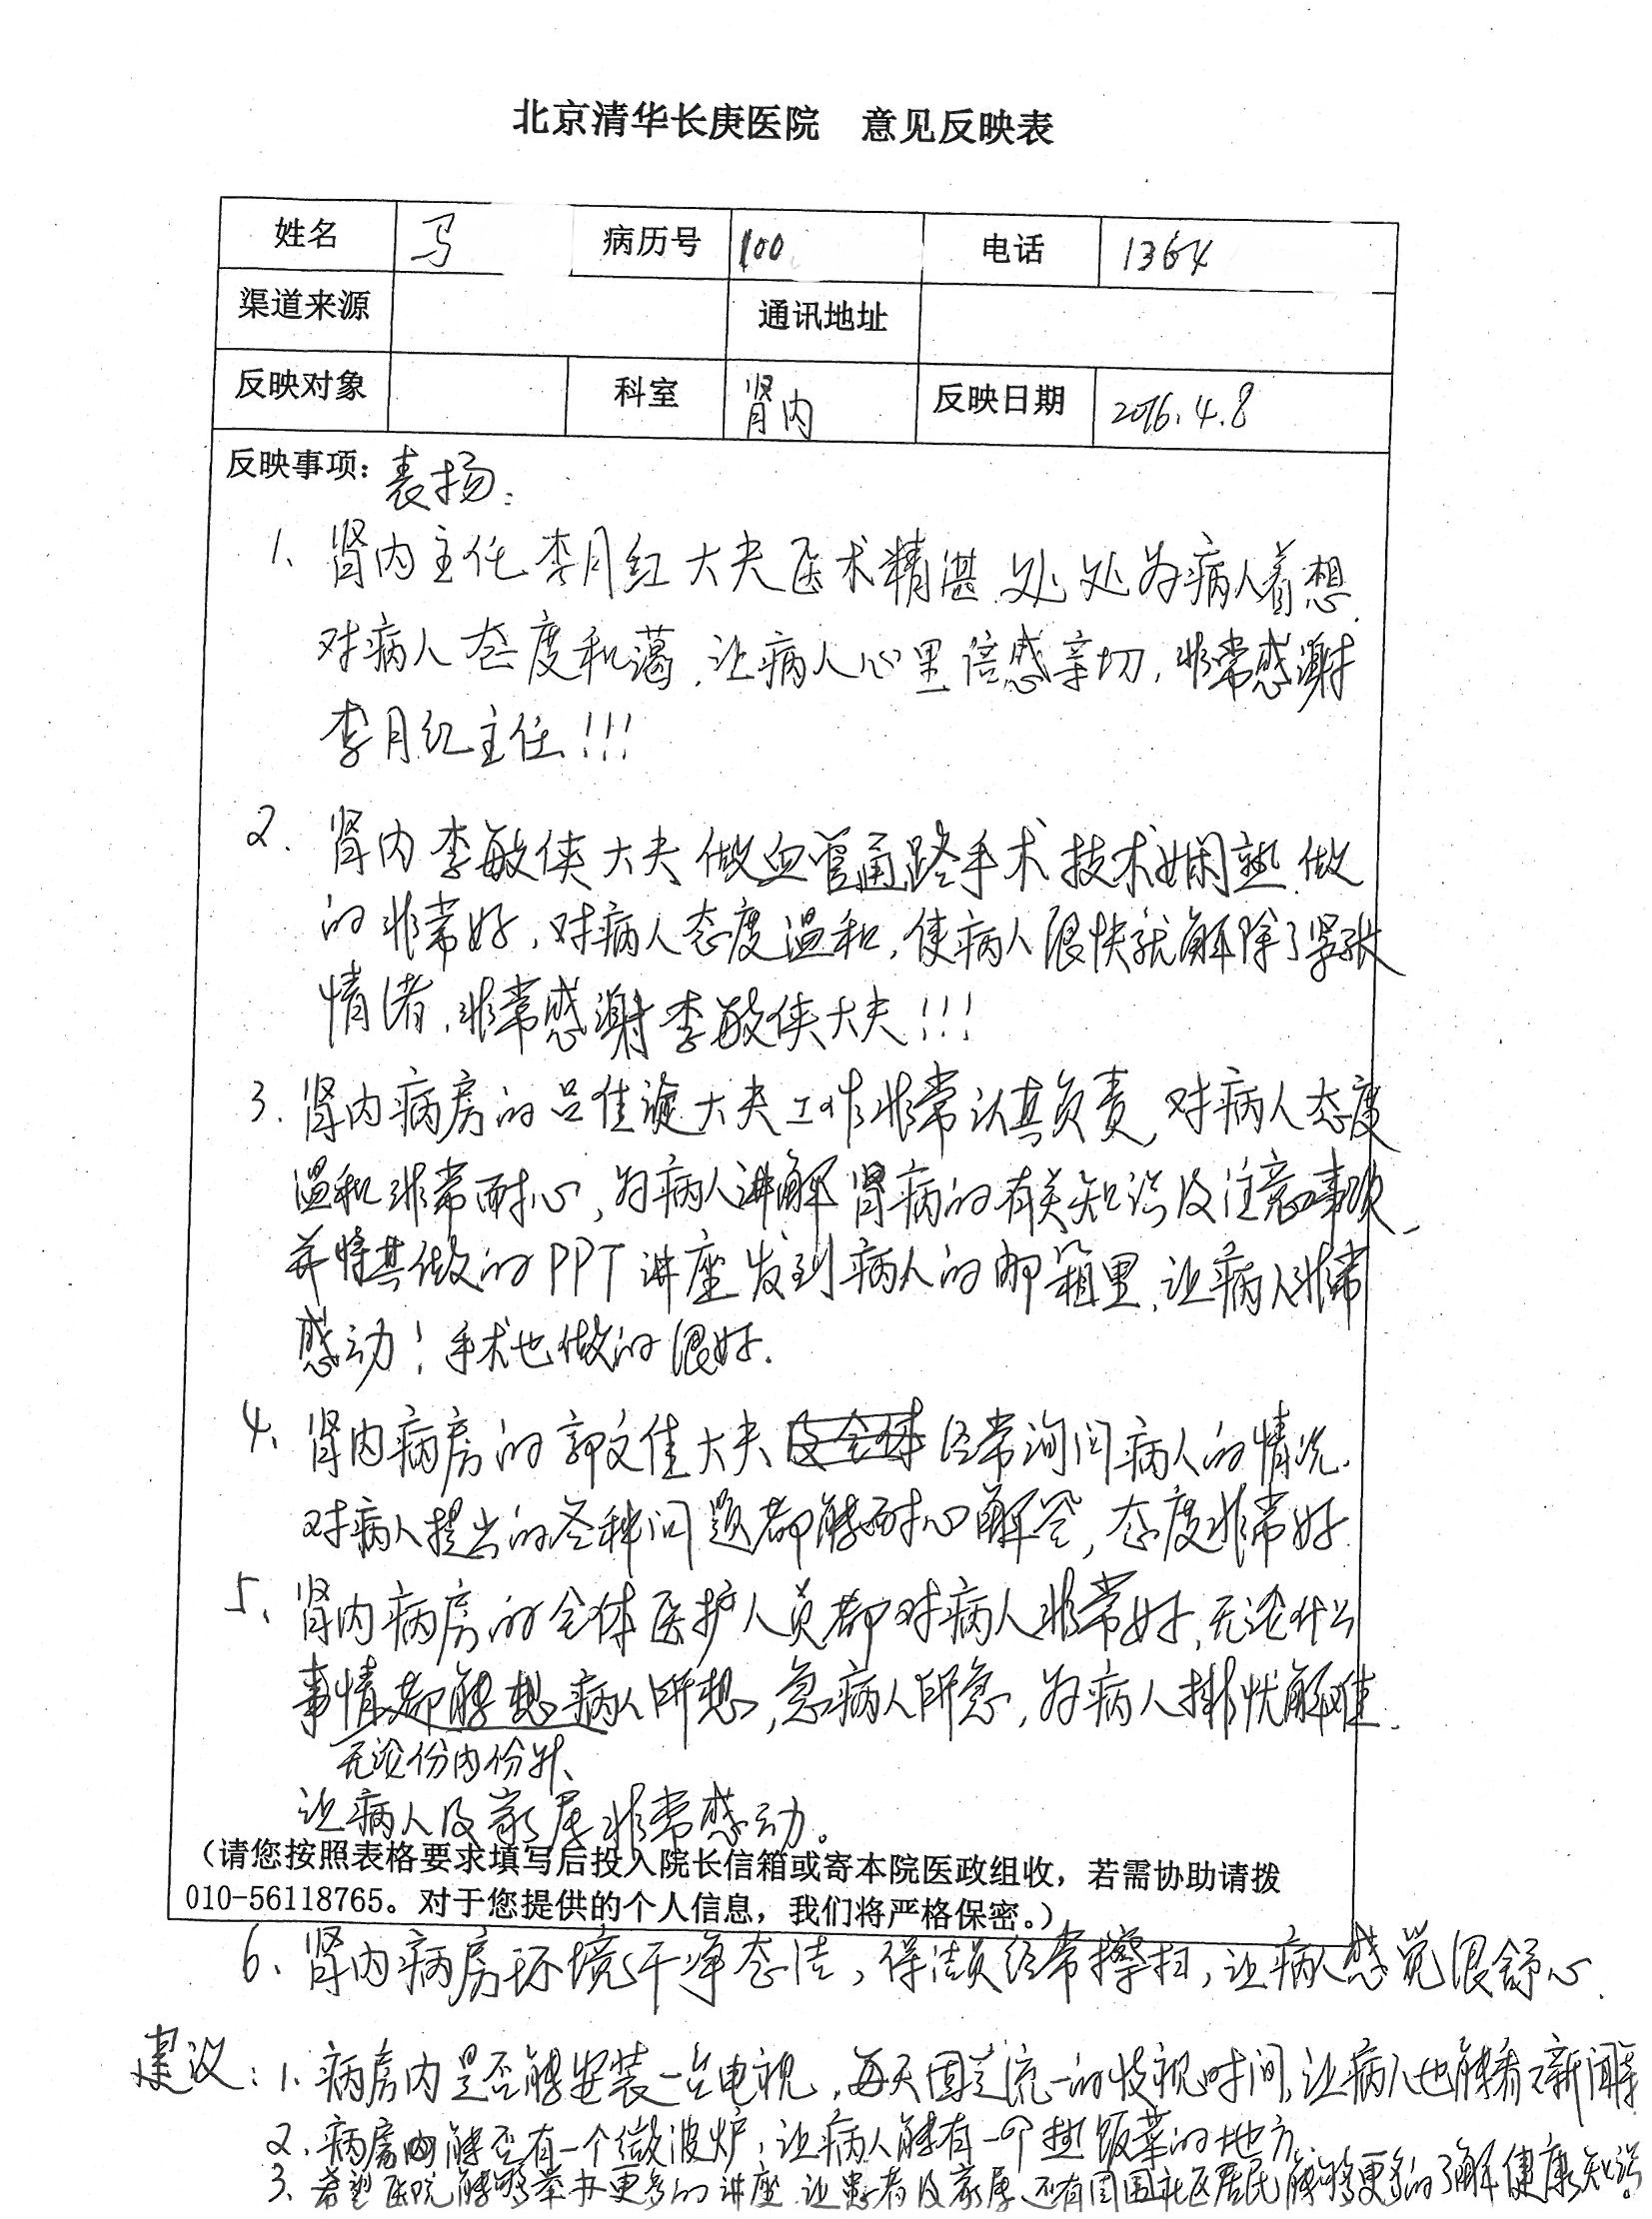 北京清华长庚医院 意见反映表
姓名 马 病历号 100 电话 1364
渠道来源 通讯地址
反映对象 科室 肾内 反映日期 2016.4.8
反映事项：表扬：
1、肾内主任李月红大夫医术精湛、处处为病人着想.
对病人态度和蔼、让病人心里倍感亲切，非常感谢
李月红主任!!!
2、肾内李敏侠大夫做血管通路手术技术娴熟、做
的非常好，对病人态度温和，使病人很快就解除了紧张
情绪，非常感谢李敏侠大夫!!!
3、肾内病房的吕佳璇大夫工作非常认真负责，对病人态度
温和非常耐心，为病人讲解肾病的有关知识及注意事项、
并将其做的PPT讲座发到病人的邮箱里，让病人非常
感动！手术也做的很好.
4、肾内病房的郭文佳大夫及全体经常询问病人的情况.
对病人提出的各种问题都能耐心解答，态度非常好.
5、肾内病房的全体医护人员都对病人非常好，无论什么
事情都能想病人所想，急病人所急，为病人排忧解难.
无论份内份外、
让病人及家属非常感动。
（请您按照表格要求填写后投入院长信箱或寄本院医政组收，若需协助请拨
010-56118765。对于您提供的个人信息，我们将严格保密。）
6、肾内病房环境干净整洁，保洁员经常擦扫，让病人感觉很舒心.
建议：1、病房内是否能安装一台电视，每天固定统一的收视时间，让病人也能看看新闻等
2、病房内能否有一个微波炉，让病人能有一个热饭菜的地方.
3、希望医院能够举办更多的讲座、让患者及家属、还有周围社区居民能够更多的了解健康知识。